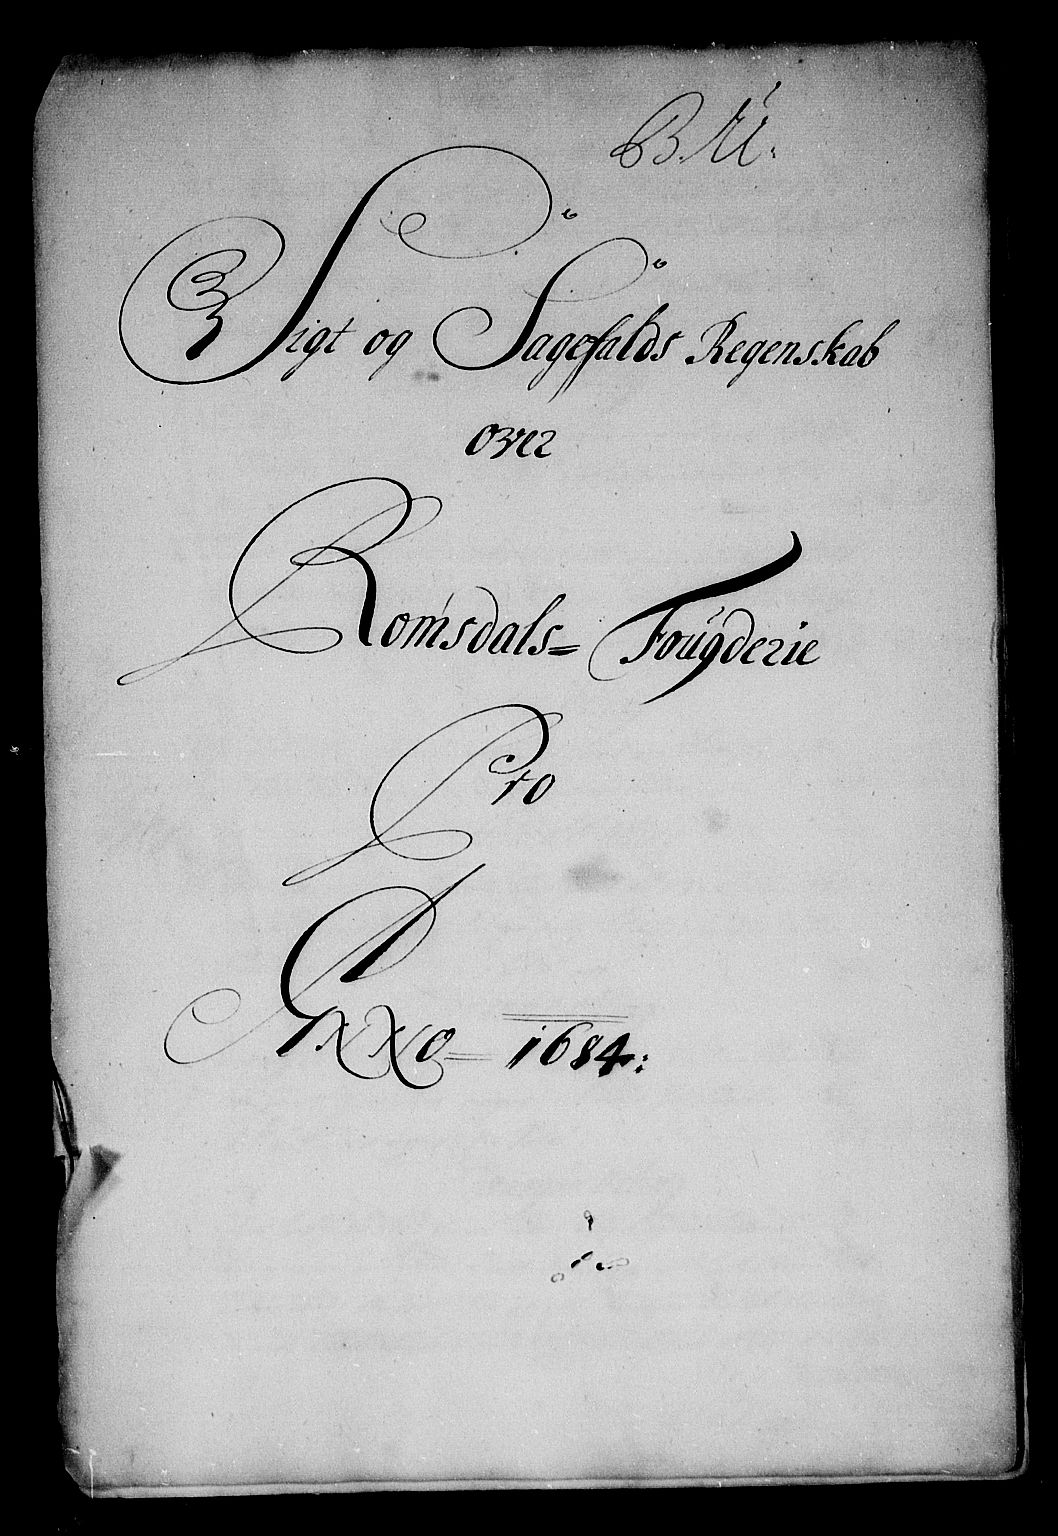 Sigt og Sagefalds Regenskab
over
Romsdals= Fougderie
Pro
Anno= 1684: